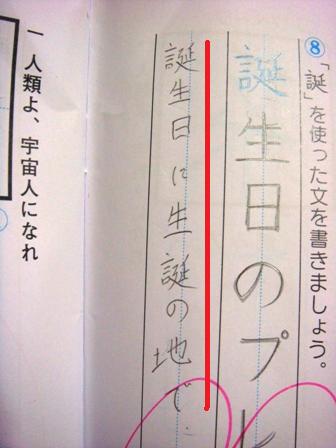 ⑧「誕」を使った文を書きましょう。
誕生日のプレ
誕生日に生誕の地で
一 人類よ、宇宙人になれ